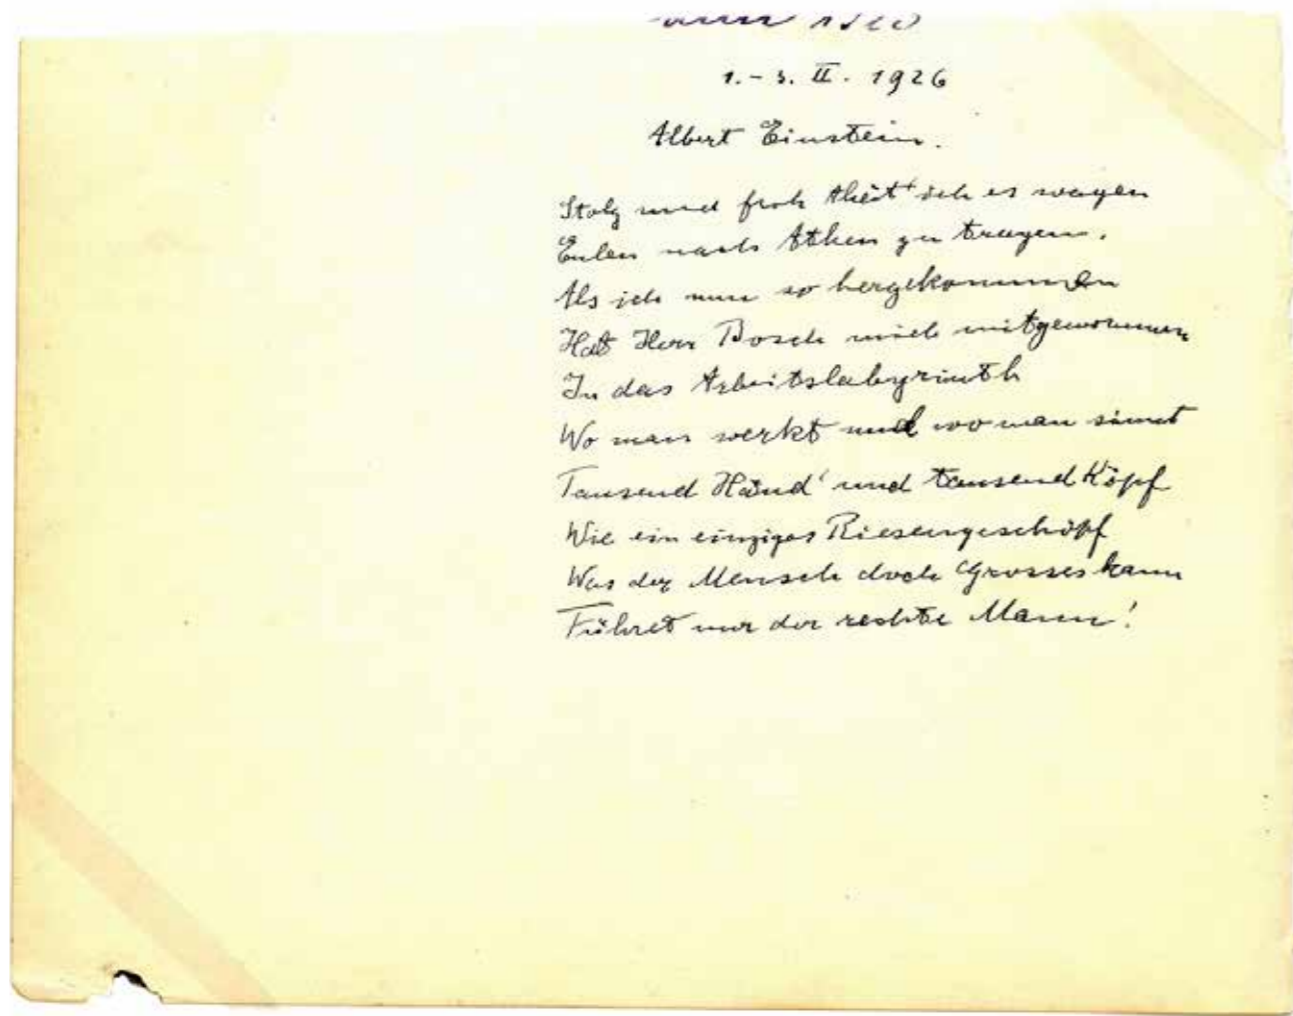 1.-3. II. 1926
Albert Einstein.
Stolz und froh thät' ich es wagen
Eulen nach Athen zu tragen.
Als ich nun so hergekommen
Hat Herr Bosch mich mitgenommen
In das Arbeitslabyrinth
Wo man werkt und wo man sinnt
Tausend Händ' und tausend Köpf
Wie ein einziges Riesengeschöpf
Was der Mensch doch Grosses kann
Führet nur der rechte Mann!